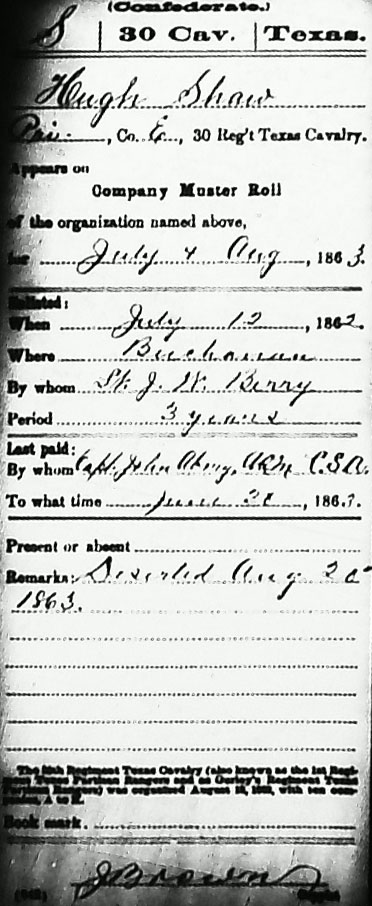 (Confederate.)
S | 30 Cav. | Texas.
Hugh Shaw
Pri., Co. E, 30 Reg't Texas Cavalry.
Appears on
Company Muster Roll
of the organization named above,
for July & Aug, 1863.
Enlisted:
When July 12, 1862.
Where Buchanan
By whom Lt. J. W. Berry
Period 3 years
Last paid:
By whom Capt. John AQM, C.S.A.
To what time June 30, 1863.
Present or absent
Remarks: Deserted Aug 20
1863.
The 30th Regiment Texas Cavalry (also known as the 1st Regi-
ment Texas Partisan Rangers and as Gurley's Regiment Texas
Partisan Rangers) was organized August 18, 1862, with ten com-
panies, A to K.
Book mark.
J Brown
(642) Copyist.